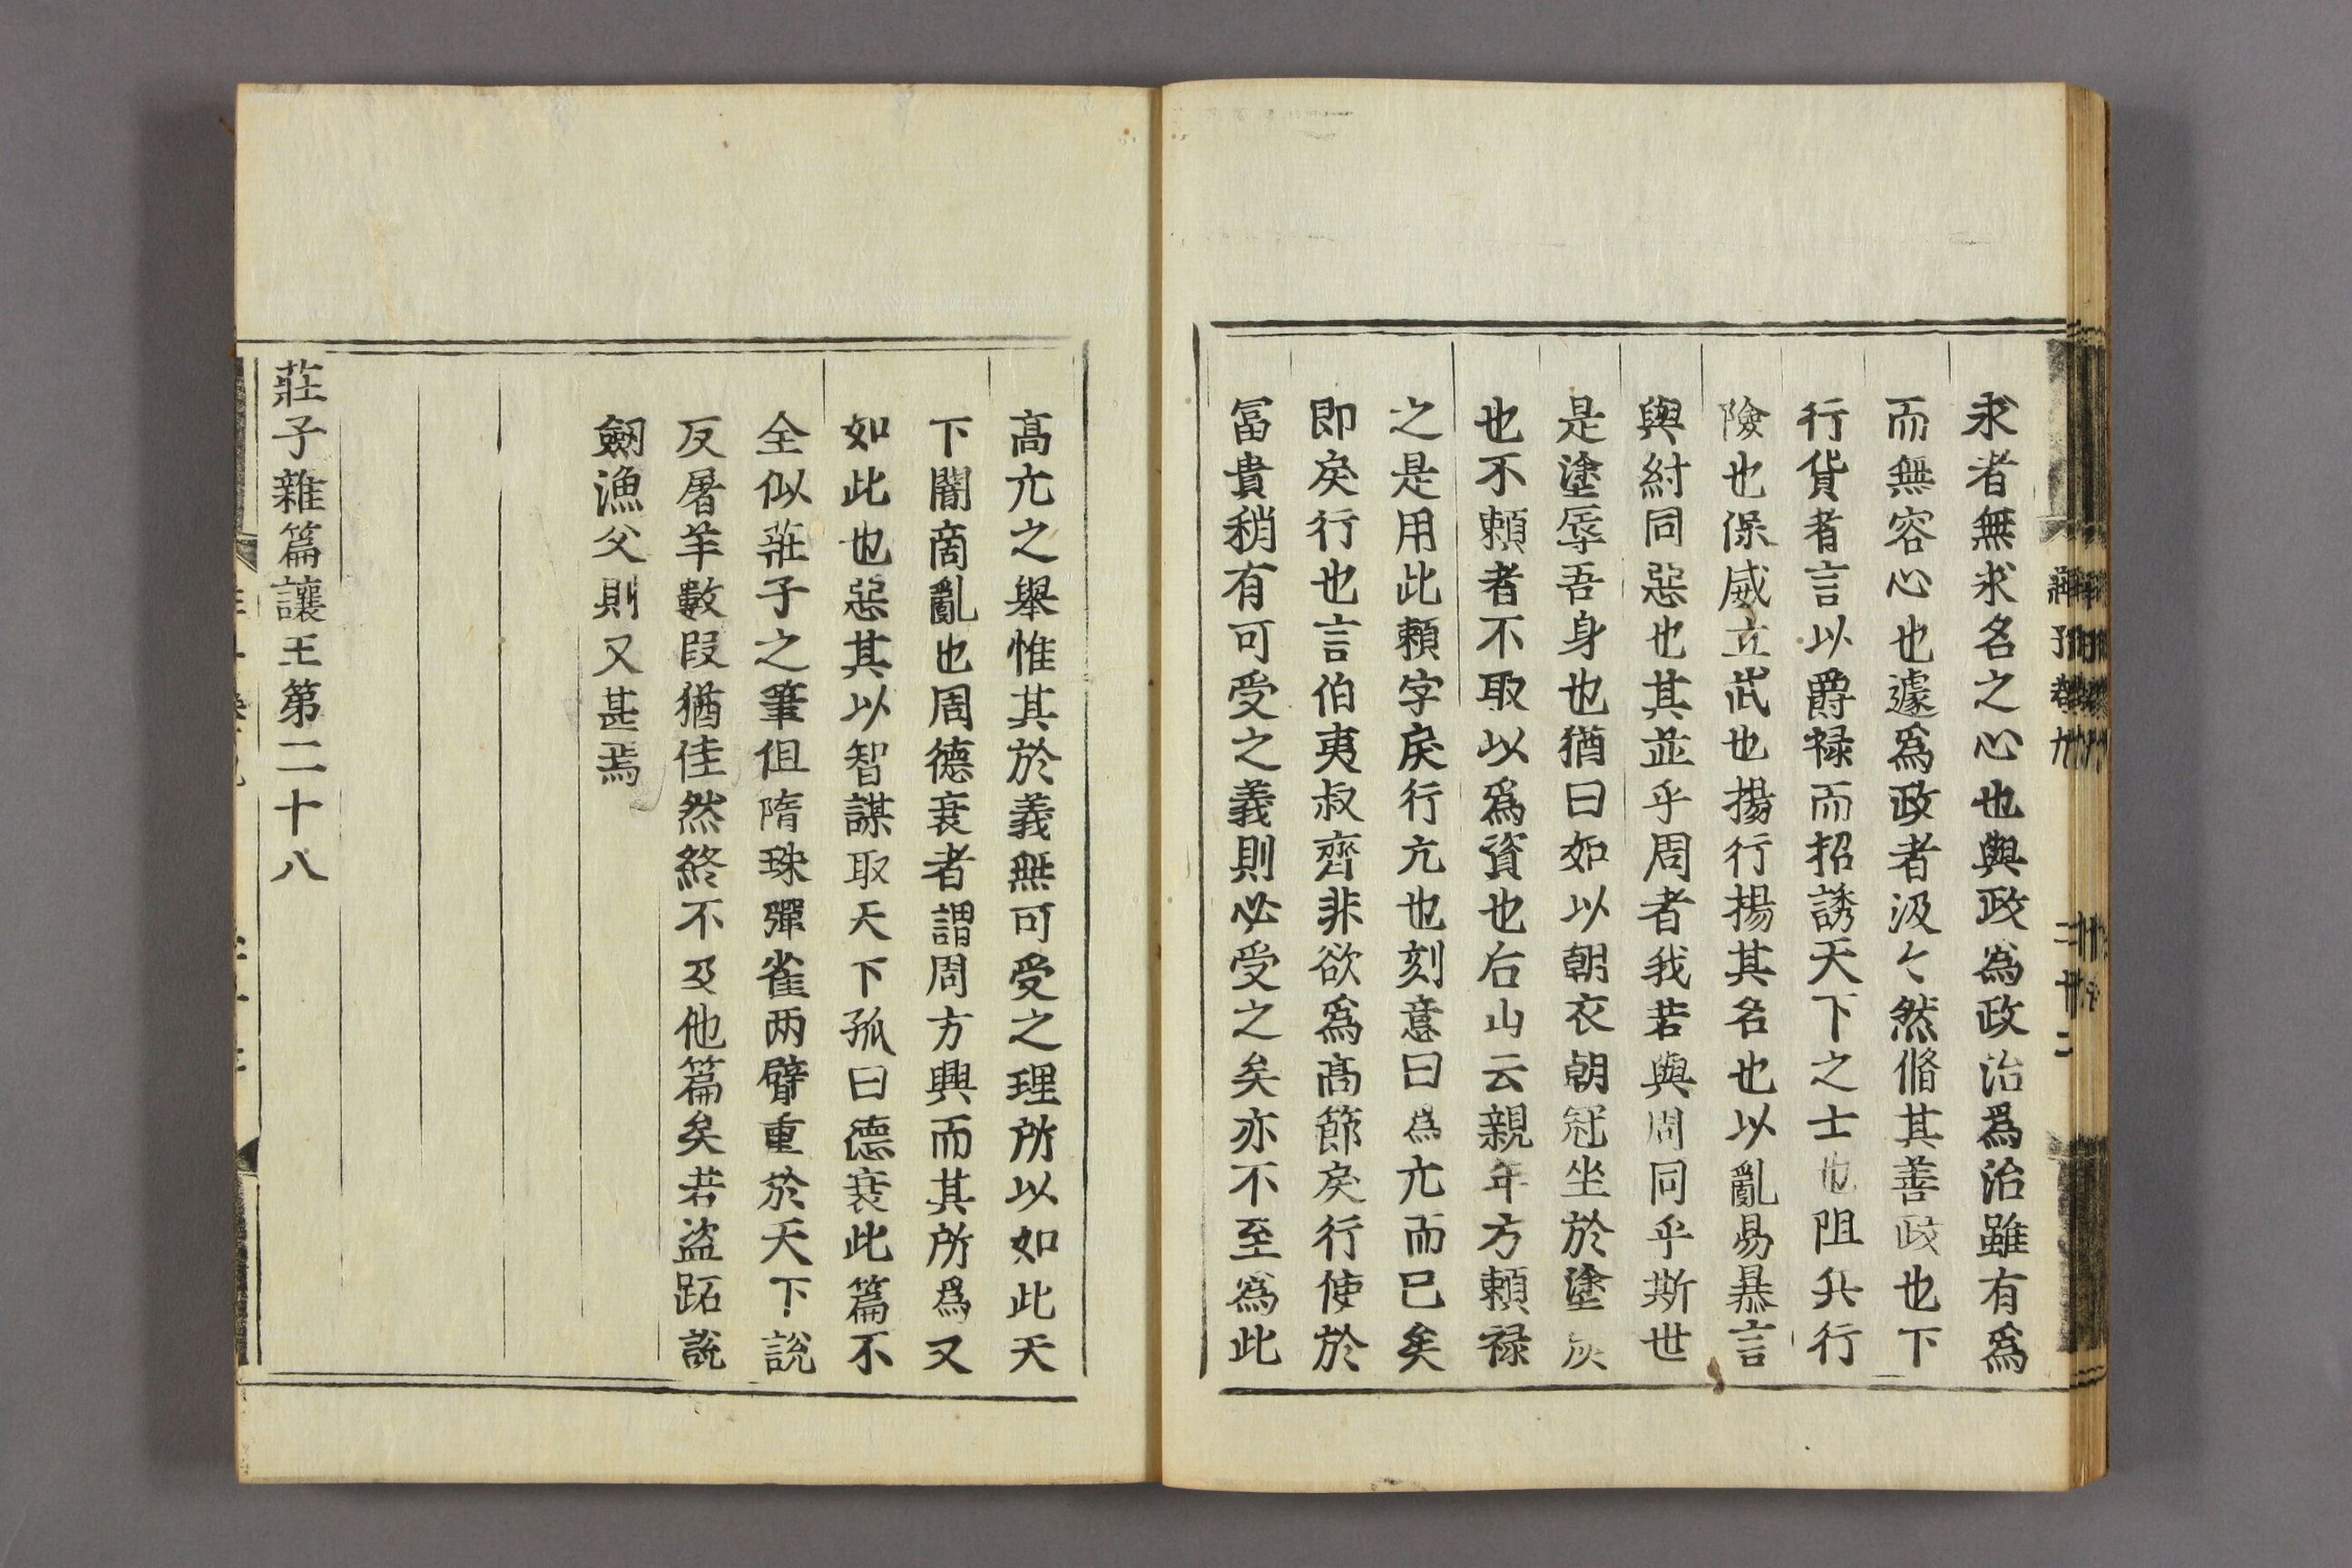 求者無求名之心也與政爲政治爲治雖有爲
而無容心也遽爲政者汲々然脩其善政也下
行貨者言以爵禄而招誘天下之士也阻兵行
險也保威立武也揚行揚其名也以亂易暴言
與紂同惡也其並乎周者我若與周同乎斯世
是塗辱吾身也猶曰如以朝衣朝冠坐於塗炭
也不頼者不取以爲資也右山云親年方頼禄
之是用此頼字戾行亢也刻意曰爲亢而已矣
即戾行也言伯夷叔齊非欲爲高節戾行使於
冨貴稍有可受之義則必受之矣亦不至爲此
高亢之舉惟其於義無可受之理所以如此天
下闇啇亂也周德衰者謂周方興而其所爲又
如此也惡其以智謀取天下孤曰德衰此篇不
全似莊子之筆但隋珠彈雀两臂重於天下說
反屠羊數叚猶佳然終不及他篇矣若盗跖說
劔漁父則又甚焉
莊子雜篇讓王第二十八